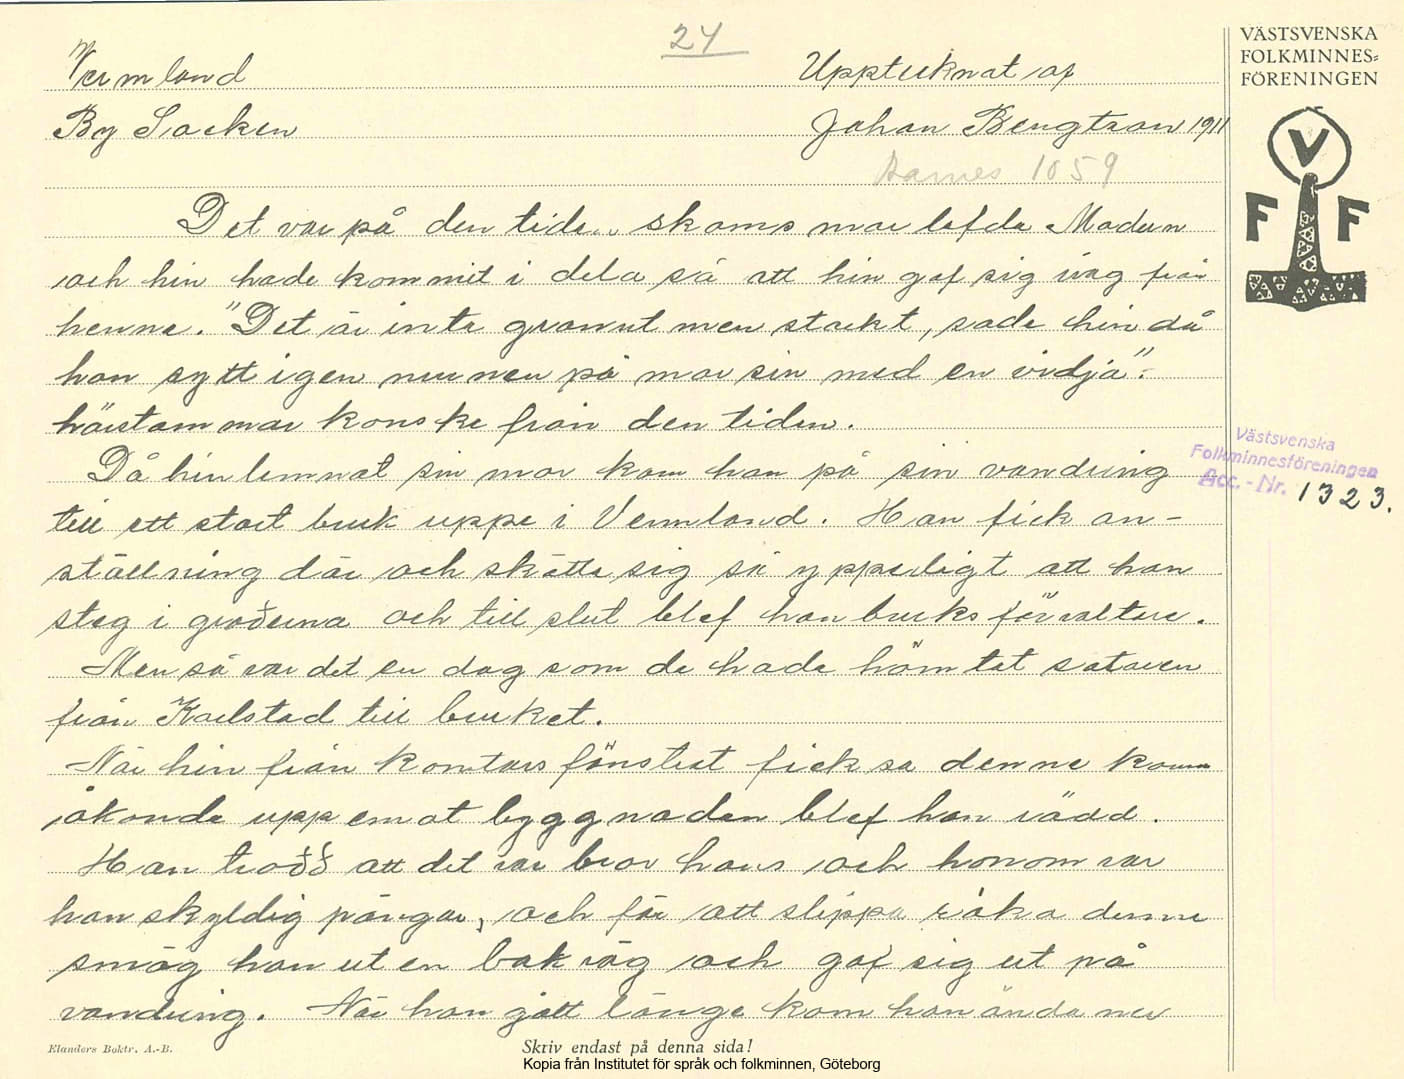 24
Vermland
Upptecknat af
By Socken
Johan Bengtson 1911
1059
Det var på den tiden skams mor lefde Modern
och hin hade kommit i dela så att hin gaf sig iväg från
henne. "Det är inte grannt men starkt, sade hin då
han sytt igen munnen på mor sin med en vidja".
härstammar kanske från den tiden.
Då hin lemnat sin mor kom han på sin vandring
till ett stort bruk uppe i Vermland. Han fick an-
ställning där och skötte sig så ypperligt att han
steg i graderna och till slut blef han bruksförvaltare.
Men så var det en dag som de hade hämtat sotaren
från Karlstad till bruket.
När hin från kontorsfönstret fick se denne komma
åkande uppemot byggnaden blef han rädd.
Han trodde att det var bror hans och honom var
han skyldig pängar, och för att slippa råka denne
smög han ut en bakväg och gaf sig ut på
vandring. När han gått länge kom han ända ner
VÄSTSVENSKA
FOLKMINNES=
FÖRENINGEN
V
F F
Västsvenska
Folkminnesföreningen
Acc.-Nr. 1323.
Elanders Boktr. A.-B.
Skriv endast på denna sida!
Kopia från Institutet för språk och folkminnen, Göteborg